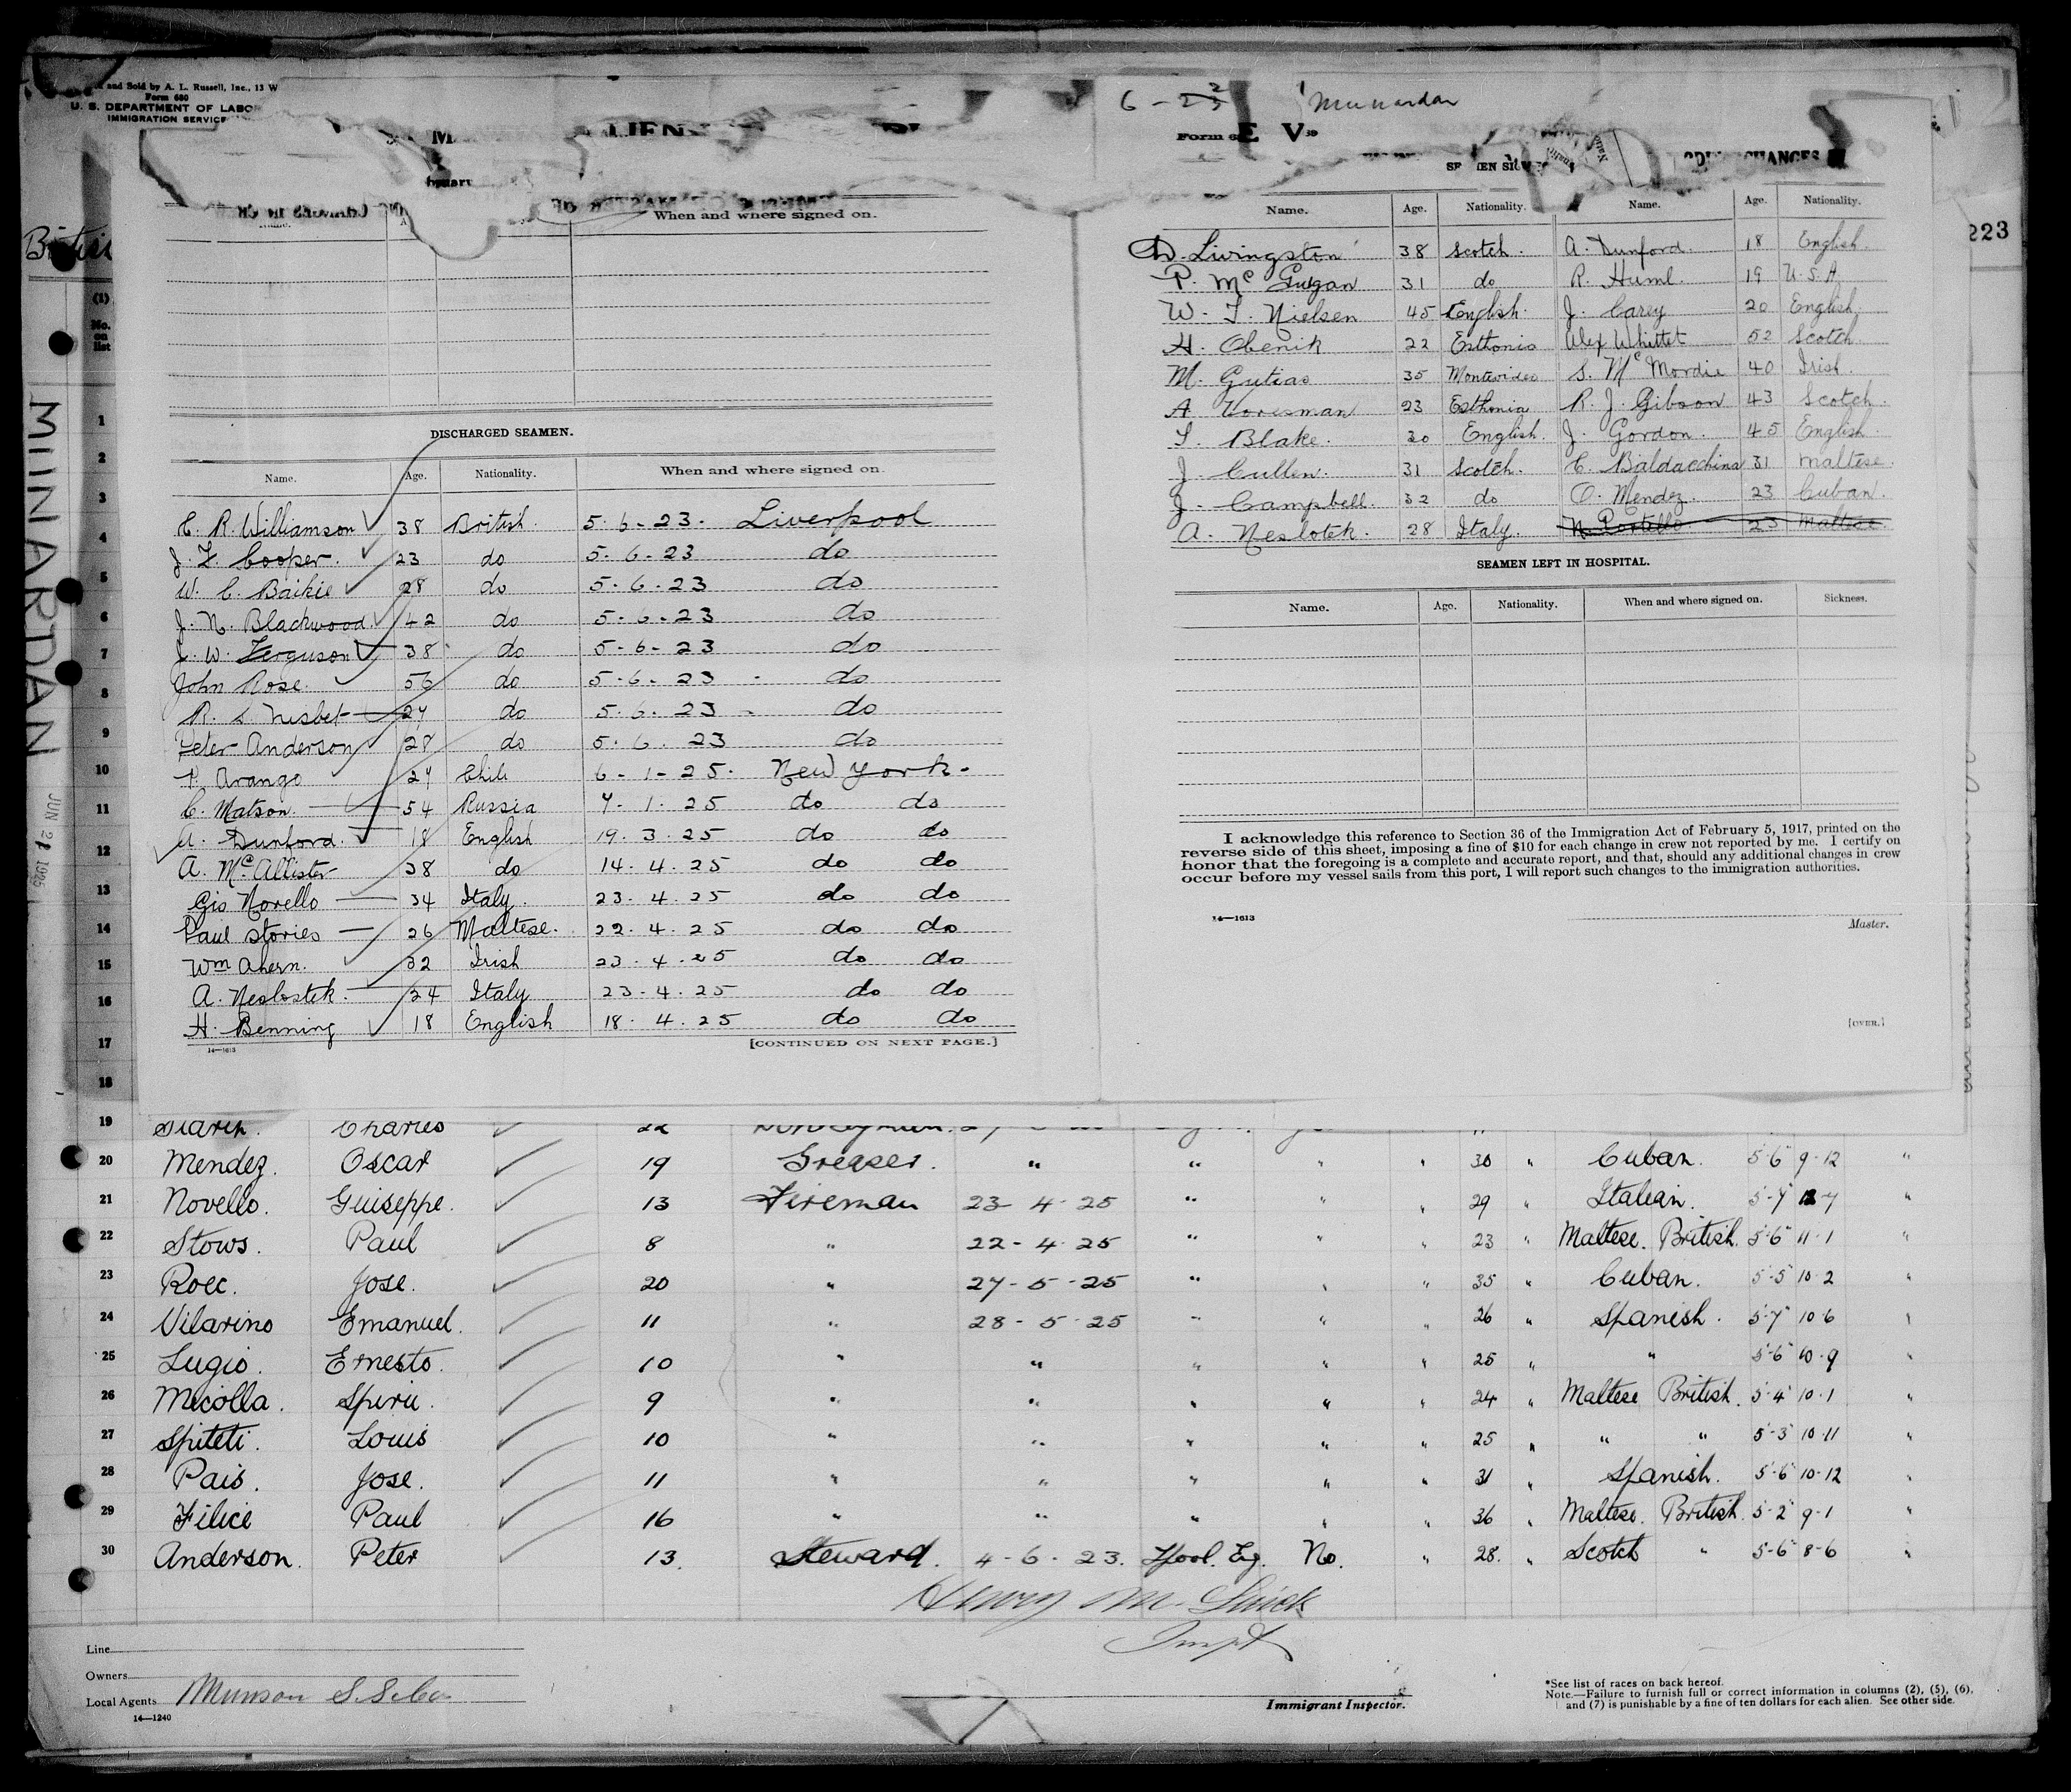 and Sold by A. L. Russell, Inc., 13 W
Form 680
U. S. DEPARTMENT OF LABOR
IMMIGRATION SERVICE
(1)
No. on list
MUNARDAN
JUN 21 1925
223
When and where signed on.
DISCHARGED SEAMEN.
Name. Age. Nationality. When and where signed on.
C. R. Williamson 38 British. 5-6-23. Liverpool
J. F. Cooper. 23 do 5-6-23 do
W. C. Baikie 28 do 5-6-23 do
J. N. Blackwood 42 do 5-6-23 do
J. W. Ferguson 38 do 5-6-23 do
John Rose. 56 do 5-6-23 do
R. L. Nisbet 27 do 5-6-23 do
Peter Anderson 28 do 5-6-23 do
P. Arango 27 Chili 6-1-25. New York.
C. Matson. 54 Russia 7-1-25 do do
A. Dunford. 18 English 19-3-25 do do
A. McAllister 38 do 14-4-25 do do
Gio Novello 34 Italy. 23-4-25 do do
Paul Stories 26 Maltese. 22-4-25 do do
Wm Ahern. 32 Irish 23-4-25 do do
A. Neslostek. 24 Italy 23-4-25 do do
H. Benning 18 English 18-4-25 do do
14—1613 [CONTINUED ON NEXT PAGE.]
Munardan
Form
Name. Age. Nationality. Name. Age. Nationality.
D. Livingston 38 Scotch. A. Dunford. 18 English.
P. Mc Guigan 31 do R. Huml. 19 U.S.A.
W. T. Nielsen 45 English. J. Carey 20 English.
H. Obenik 22 Esthonia Alex Whittet 52 Scotch
M. Gutias 35 Montevideo S. McMordie 40 Irish.
A. 23 Esthonia R. J. Gibson 43 Scotch.
T. Blake. 20 English. J. Gordon. 45 English
J. Cullen. 31 Scotch. C. Baldacchina 31 Maltese.
J. Campbell. 32 do O. Mendez. 23 Cuban.
A. Neslotek. 28 Italy. N. Portello 23 Maltese
SEAMEN LEFT IN HOSPITAL.
Name. Age. Nationality. When and where signed on. Sickness.
I acknowledge this reference to Section 36 of the Immigration Act of February 5, 1917, printed on the
reverse side of this sheet, imposing a fine of $10 for each change in crew not reported by me. I certify on
honor that the foregoing is a complete and accurate report, and that, should any additional changes in crew
occur before my vessel sails from this port, I will report such changes to the immigration authorities.
14—1613
Master.
[OVER.]
1
2
3
4
5
6
7
8
9
10
11
12
13
14
15
16
17
18
19 Charles 22
20 Mendez. Oscar 19 Greaser. " " " " 30 " Cuban. 5-6 9-12 "
21 Novello. Guiseppe. 13 Fireman 23-4-25 " " " 29 " Italian. 5-7 12-7 "
22 Stows. Paul 8 " 22-4-25 " " " 23 " Maltese. British. 5-6 11-1 "
23 Roec. Jose. 20 " 27-5-25 " " " 35 " Cuban. 5-5 10-2 "
24 Vilarino Emanuel. 11 " 28-5-25 " " " 26 " Spanish. 5-7 10-6 "
25 Lugio. Ernesto. 10 " " " " " 25 " " 5-6 10-9 "
26 Micolla. Spiru. 9 " " " " " 24 " Maltese British. 5-4 10-1 "
27 Spiteti. Louis 10 " " " " " 25 " " " 5-3 10-11 "
28 Pais. Jose. 11 " " " " " 31 " Spanish. 5-6 10-12 "
29 Filice Paul 16 " " " " " 36 " Maltese. British. 5-2 9-1 "
30 Anderson. Peter 13. Steward. 4-6-23. Lpool. Eg. No. " 28. " Scotch " 5-6 8-6 "
Line
Owners
Local Agents Munson S.S. Co
14—1240
Immigrant Inspector.
*See list of races on back hereof.
Note.—Failure to furnish full or correct information in columns (2), (5), (6),
and (7) is punishable by a fine of ten dollars for each alien. See other side.